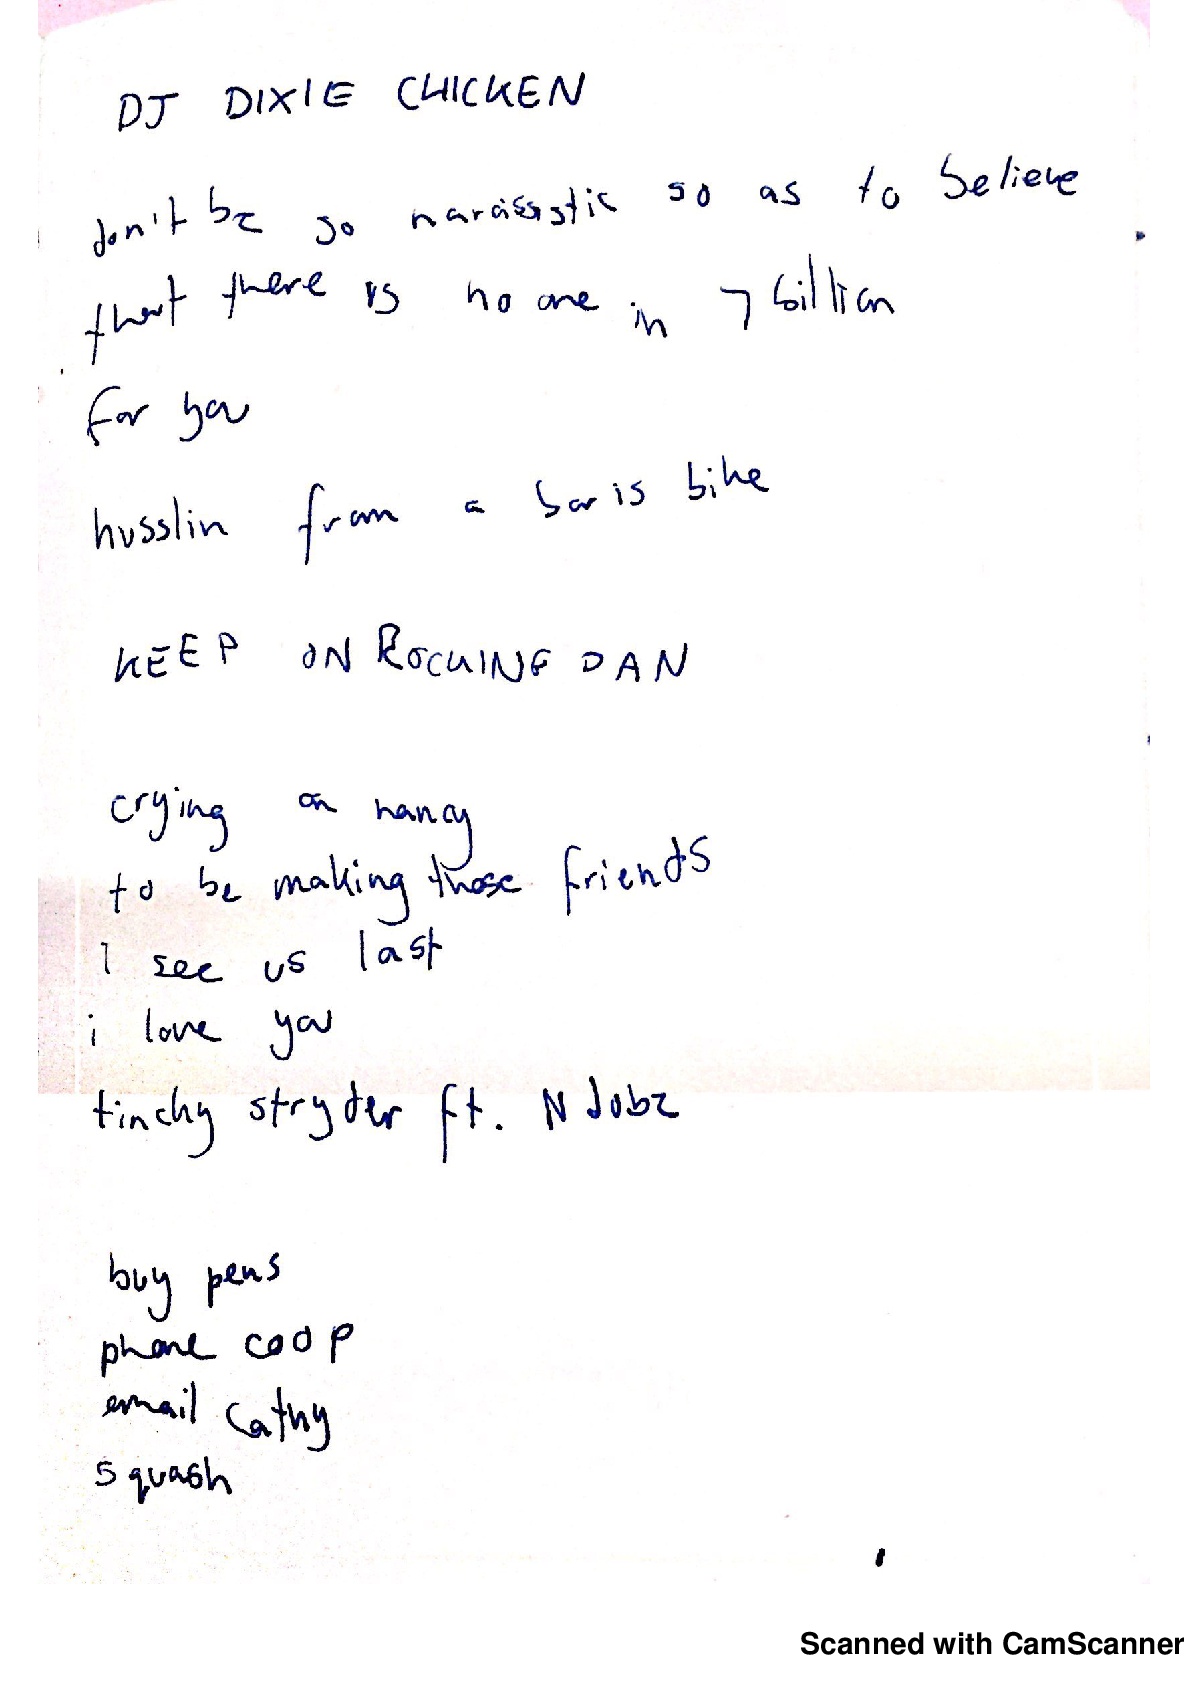 DJ DIXIE CHICKEN
don't be so narassistic so as to believe
that there is no one in 7 billion
for you
husslin from a boris bike
KEEP ON ROCKING DAN
crying on nancy
to be making those friends
I see us last
i love you
tinchy stryder ft. N dubz
buy pens
phone coop
email cathy
squash
Scanned with CamScanner